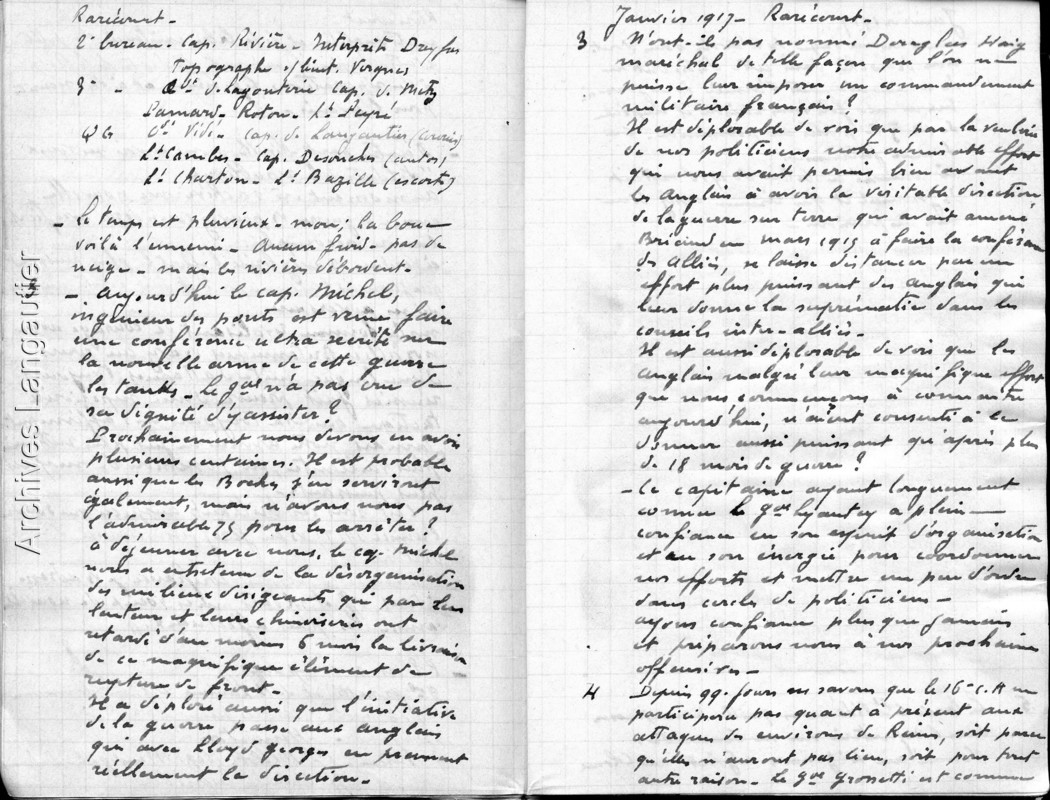 Rarécourt -
2e bureau - Cap. Rivière - Interprète Dreyfus
Topographe s/lieut. Vergnes
3e - Ct de Lagonterie Cap. de Metz
Lamard - Roton - Lt Peyré
QG Ct Vidé - Cap. de Langautier (courrier)
Lt Cambes - Cap. Desouches (autos)
Lt Charton - Lt Bazille (escorte)
- Le temps est pluvieux - mou; la boue
voilà l'ennemi - Aucun froid - pas de
neige - mais les rivières débordent -
- Aujourd'hui le cap. Michel,
ingénieur des ponts est venu faire
une conférence ultra secrète sur
la nouvelle arme de cette guerre
les tanks - le gal n'a pas cru de
sa dignité d'y assister?
Prochainement nous devons en avoir
plusieurs centaines. Il est probable
aussi que les Boches s'en serviront
également, mais n'avons nous pas
l'admirable 75 pour les arrêter?
à déjeuner avec nous, le cap. Michel
nous a entretenu de la désorganisation
des milieux dirigeants qui par leur
lenteur et leurs chinoiseries ont
retardé d'au moins 6 mois la livraison
de ce magnifique élément de
rupture de front -
Il a déploré aussi que l'initiative
de la guerre passe aux anglais
qui avec Lloyd georges en prennent
réellement la direction -
Archives Langautier
Janvier 1917 - Rarécourt -
3 N'ont-ils pas nommé Douglas Haig
maréchal de telle façon que l'on ne
puisse leur imposer un commandement
militaire français?
Il est déplorable de voir que par la veulerie
de nos politiciens notre admirable effort
qui nous avait permis bien avant
les Anglais à avoir la véritable direction
de la guerre sur terre qui avait amené
Briand en mars 1915 à faire la conférence
des Alliés, se laisse distancer par un
effort plus puissant des anglais qui
leur donne la suprématie dans les
conseils inter-alliés -
Il est aussi déplorable de voir que les
anglais malgré leur magnifique effort
que nous commençons à connaître
aujourd'hui, n'aient consenti à le
donner aussi puissant qu'après plus
de 18 mois de guerre?
- Ce capitaine ayant longuement
connu le gal Lyautey a pleine
confiance en son esprit d'organisation
et en son énergie pour coordonner
nos efforts et mettre un peu d'ordre
dans cercles de politiciens -
ayons confiance plus que jamais
et préparons nous à nos prochaines
offensives -
4 Depuis qq. jours ns savons que le 16e C.A ne
participera pas quant à présent aux
attaques des environs de Reims, soit parce
qu'elles n'auront pas lieu, soit pour tout
autre raison - Le gal Grossetti est comme